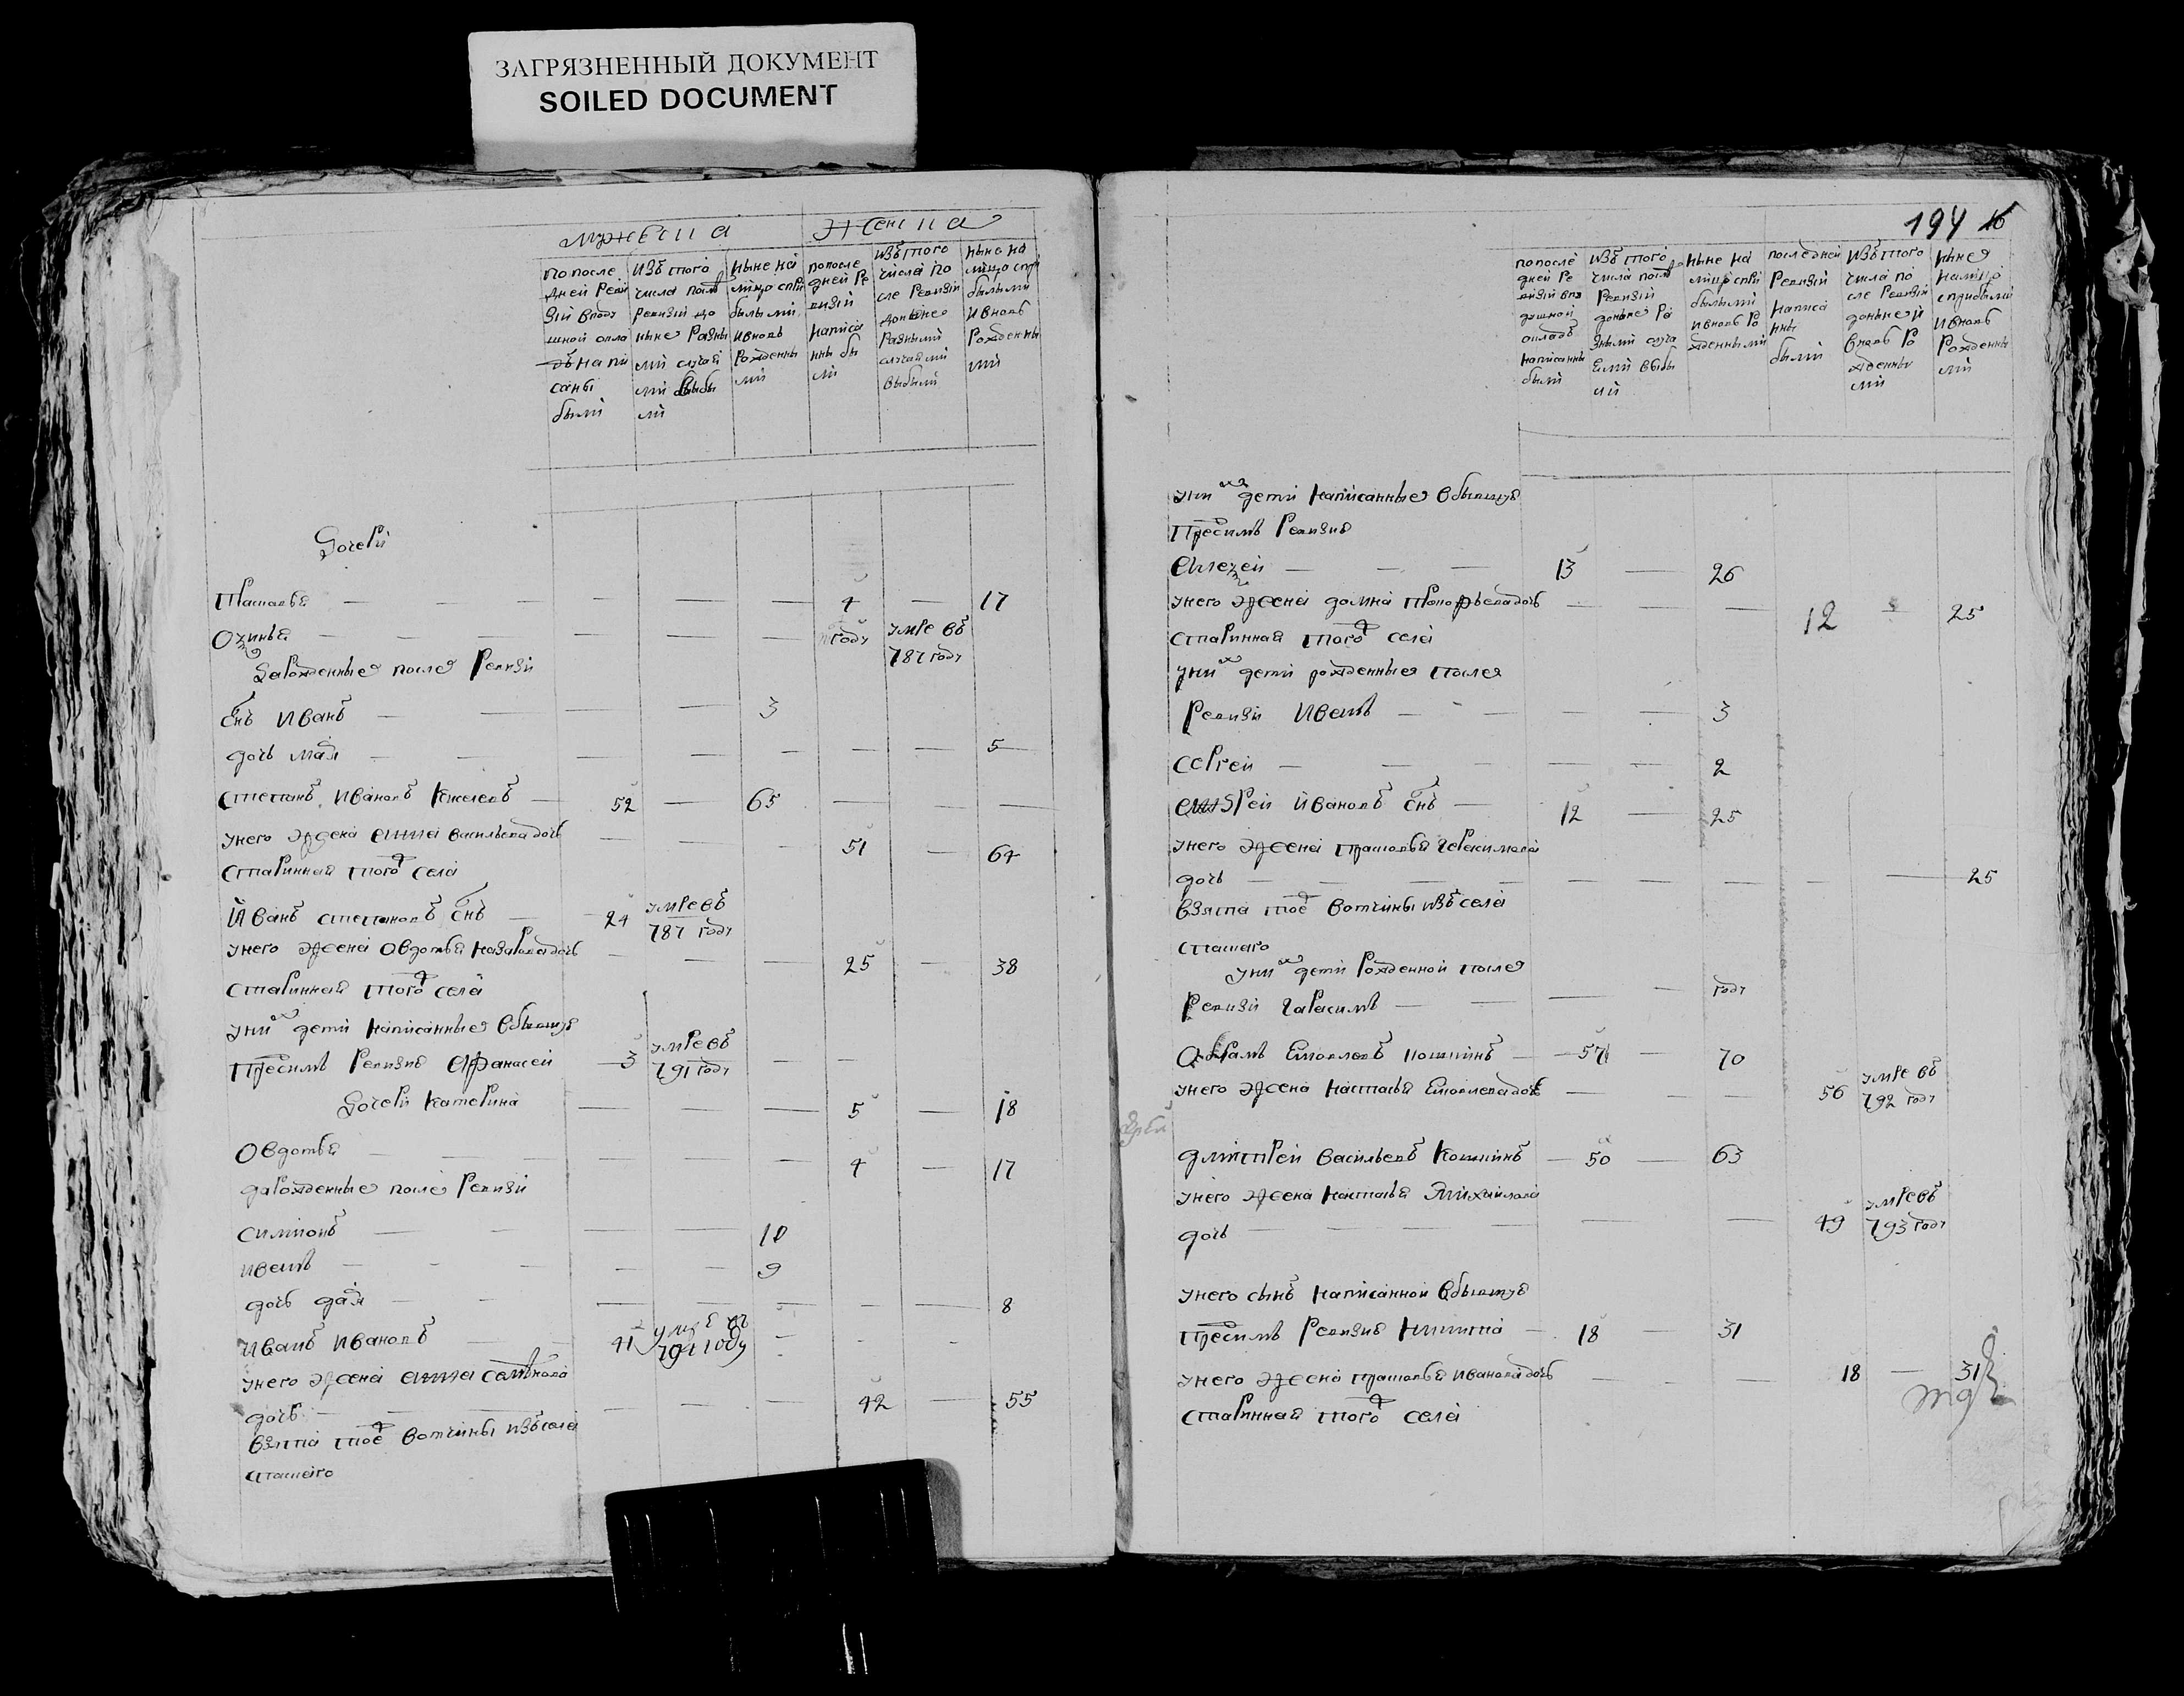 ЗАГРЯЗНЕННЫЙ ДОКУМЕНТ
SOILED DOCUMENT
мужеска
женска
по после дней реви зии в поду шной окла дѣ напи саны были
изъ того числа послѣ ревизии до ныне разны ми случаи ми выбы ли
ныне на лицо спри былыми и вновь рожденны ми
по после дней ре визии написа ны бы ли
изъ того числа по сле ревизии доныне разными случаями выбыли
ныне на лицо спри былыми и вновь рожденны ми
дочери
Прасковья — 4 — 17
году умре въ 787 году
да рожденные после ревизи
снъ Иванъ — 3
дочь — 5
Степанъ Ивановъ — 52 — 65
у него жена Анна Васильева дочь — 51 — 64
старинная того села
Иванъ Степановъ снъ — 24 умре въ 787 году
у него жена Овдотья Назарова дочь — 25 — 38
старинная того села
у них дети написанные в бывшую
пред сим ревизию Афанасеи — 3 умре въ 791 году
дочери Катерина — 5 — 18
Овдотья — 4 — 17
да рожденные после ревизи
Симионъ — 10
Иванъ — 9
дочь — 8
Иванъ Ивановъ — 41 умре въ году
у него жена Анна
дочь — 42 — 55
взята тое вотчины изъ села
194
по после дней ре визии в по душной окладъ написанны были
изъ того числа послѣ ревизии доныне ра зными случа ями выбы ли
ныне на лицо спри былыми и вновь ро жденными
последней ревизии написа нны были
изъ того числа по сле ревизии доныне и вновь ро жденны ми
ныне на лицо с прибылыми и вновь рожденны ми
у них дети написанные в бывшую
пред сим ревизию
Алезеи — 13 — 26
у него жена Домна дочь — 12 — 25
старинная того села
у них дети рожденные после
ревизи Иванъ — 3
Сергеи — 2
Ивановъ снъ — 12 — 25
у него жена Прасковья Герасимова
дочь — 25
взята тое вотчины изъ села
у них дети рожденной после
ревизи Гарасимъ — году
57 — 70
у него жена Настасья дочь — 56 умре въ 792 году
Дмитреи Васильевъ — 50 — 63
у него жена Настасья Михайлова
дочь — 49 умре въ 793 году
у него сынъ написанной в бывшую
пред сим ревизию Никита — 18 — 31
у него жена Прасковья Иванова дочь — 18 — 31
старинная того села